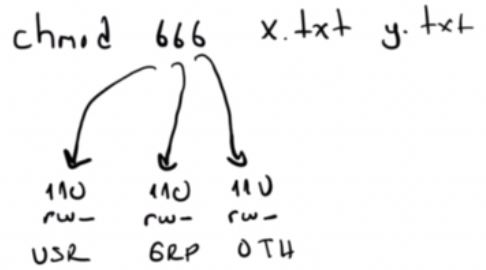 chmod 666 x.txt y.txt
110 110 110
rw- rw- rw-
USR GRP OTH